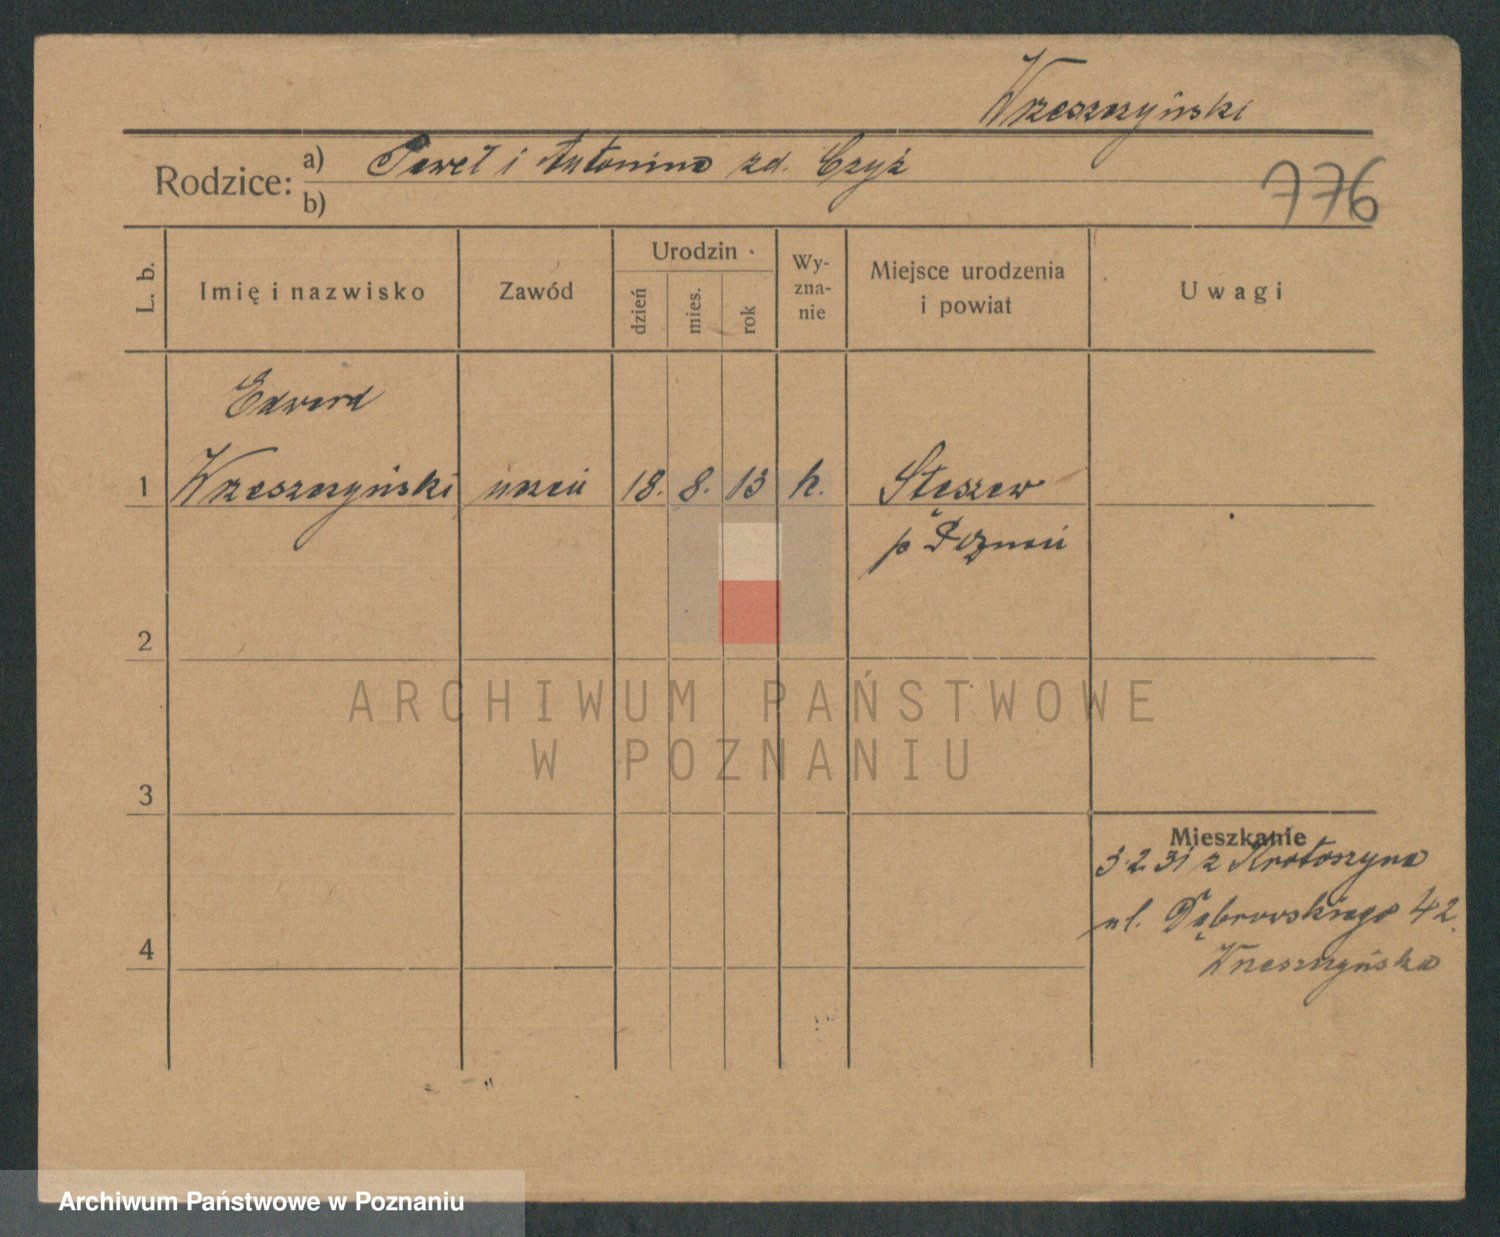 Wrzeszczyński
Rodzice: a) Paweł i Antonina zd. Czyż
b)
776
L. b.
Imię i nazwisko
Zawód
Urodzin
dzień
mies.
rok
Wy-
zna-
nie
Miejsce urodzenia
i powiat
Uwagi
Edward
1 Wrzeszczyński uczeń 18. 8. 13 k. Stęszew
p Poznań
2
ARCHIWUM PAŃSTWOWE
W POZNANIU
3
Mieszkanie
3.2.31 z Krotoszyna
ul. Dąbrowskiego 42.
Wrzeszczyńska
4
Archiwum Państwowe w Poznaniu